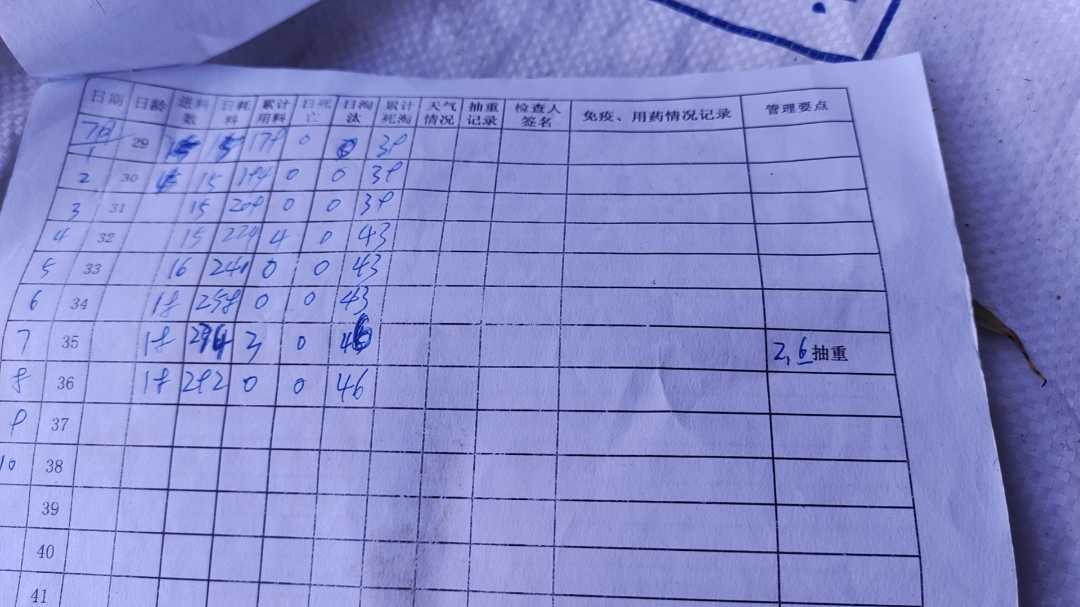 日期 日龄 进料数 日耗料 累计用料 日死亡 日淘汰 累计死淘 天气情况 抽重记录 检查人签名 免疫、用药情况记录 管理要点
1 29 15 179 0 0 39
2 30 15 194 0 0 39
3 31 15 209 0 0 39
4 32 15 224 4 0 43
5 33 16 240 0 0 43
6 34 18 258 0 0 43
7 35 18 3 0 46 2,6抽重
8 36 18 292 0 0 46
9 37
10 38
39
40
41